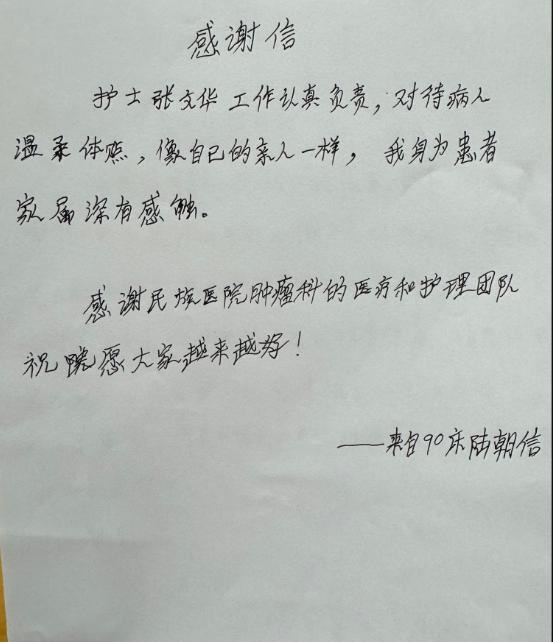 感谢信
护士张文华工作认真负责，对待病人
温柔体贴，像自己的亲人一样，我身为患者
家属深有感触。
感谢民族医院肿瘤科的医疗和护理团队
祝院愿大家越来越好！
——来自90床陆朝信